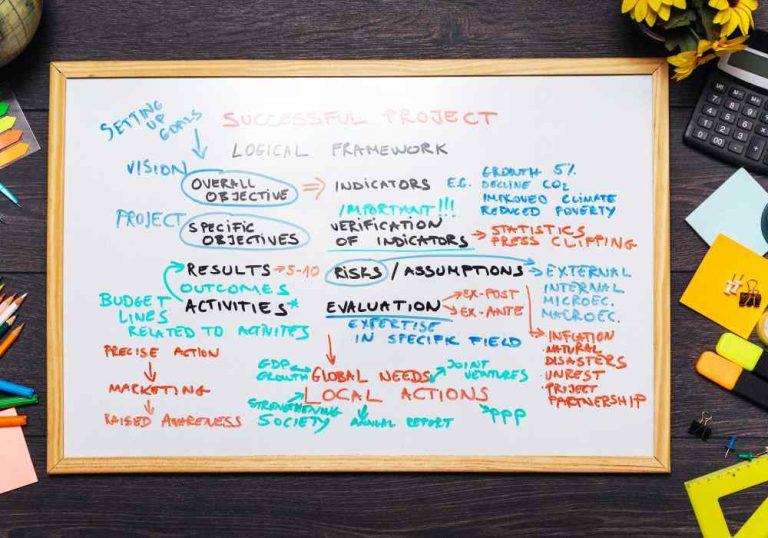 SETTING
UP
GOALS
SUCCESSFUL PROJECT
LOGICAL FRAMEWORK
VISION
OVERALL
OBJECTIVE
INDICATORS
E.G.
GROWTH 5%
DECLINE CO2
IMPROVED CLIMATE
REDUCED POVERTY
IMPORTANT!!!
PROJECT
SPECIFIC
OBJECTIVES
VERIFICATION
OF INDICATORS
STATISTICS
PRESS CLIPPING
RESULTS
5-10
RISKS / ASSUMPTIONS
EXTERNAL
INTERNAL
MICROEC.
MACROEC.
OUTCOMES
ACTIVITIES*
BUDGET
LINES
RELATED TO ACTIVITES
EVALUATION
EX-POST
EX-ANTE
EXPERTISE
IN SPECIFIC FIELD
INFLATION
NATURAL
DISASTERS
UNREST
PROJECT
PARTNERSHIP
PRECISE ACTION
MARKETING
RAISED AWARENESS
GDP
GROWTH
GLOBAL NEEDS
JOINT
VENTURES
LOCAL ACTIONS
STRENGTHENING
SOCIETY
ANNUAL REPORT
PPP